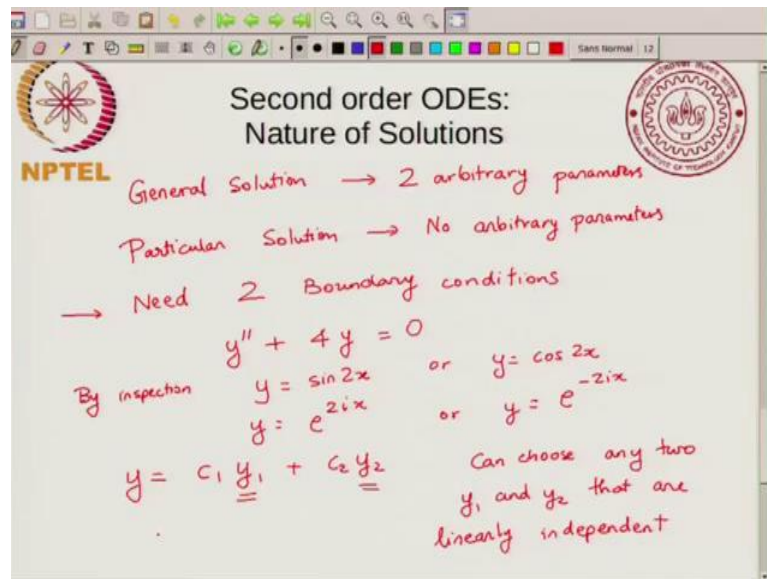 Sans Normal 12
Second order ODEs:
Nature of Solutions
NPTEL
General Solution → 2 arbitrary parameters
Particular Solution → No arbitrary parameters
→ Need 2 Boundary conditions
y'' + 4y = 0
By inspection y = sin 2x or y = cos 2x
y = e^{2ix} or y = e^{-2ix}
y = c₁ y₁ + c₂ y₂
Can choose any two
y₁ and y₂ that are
linearly independent